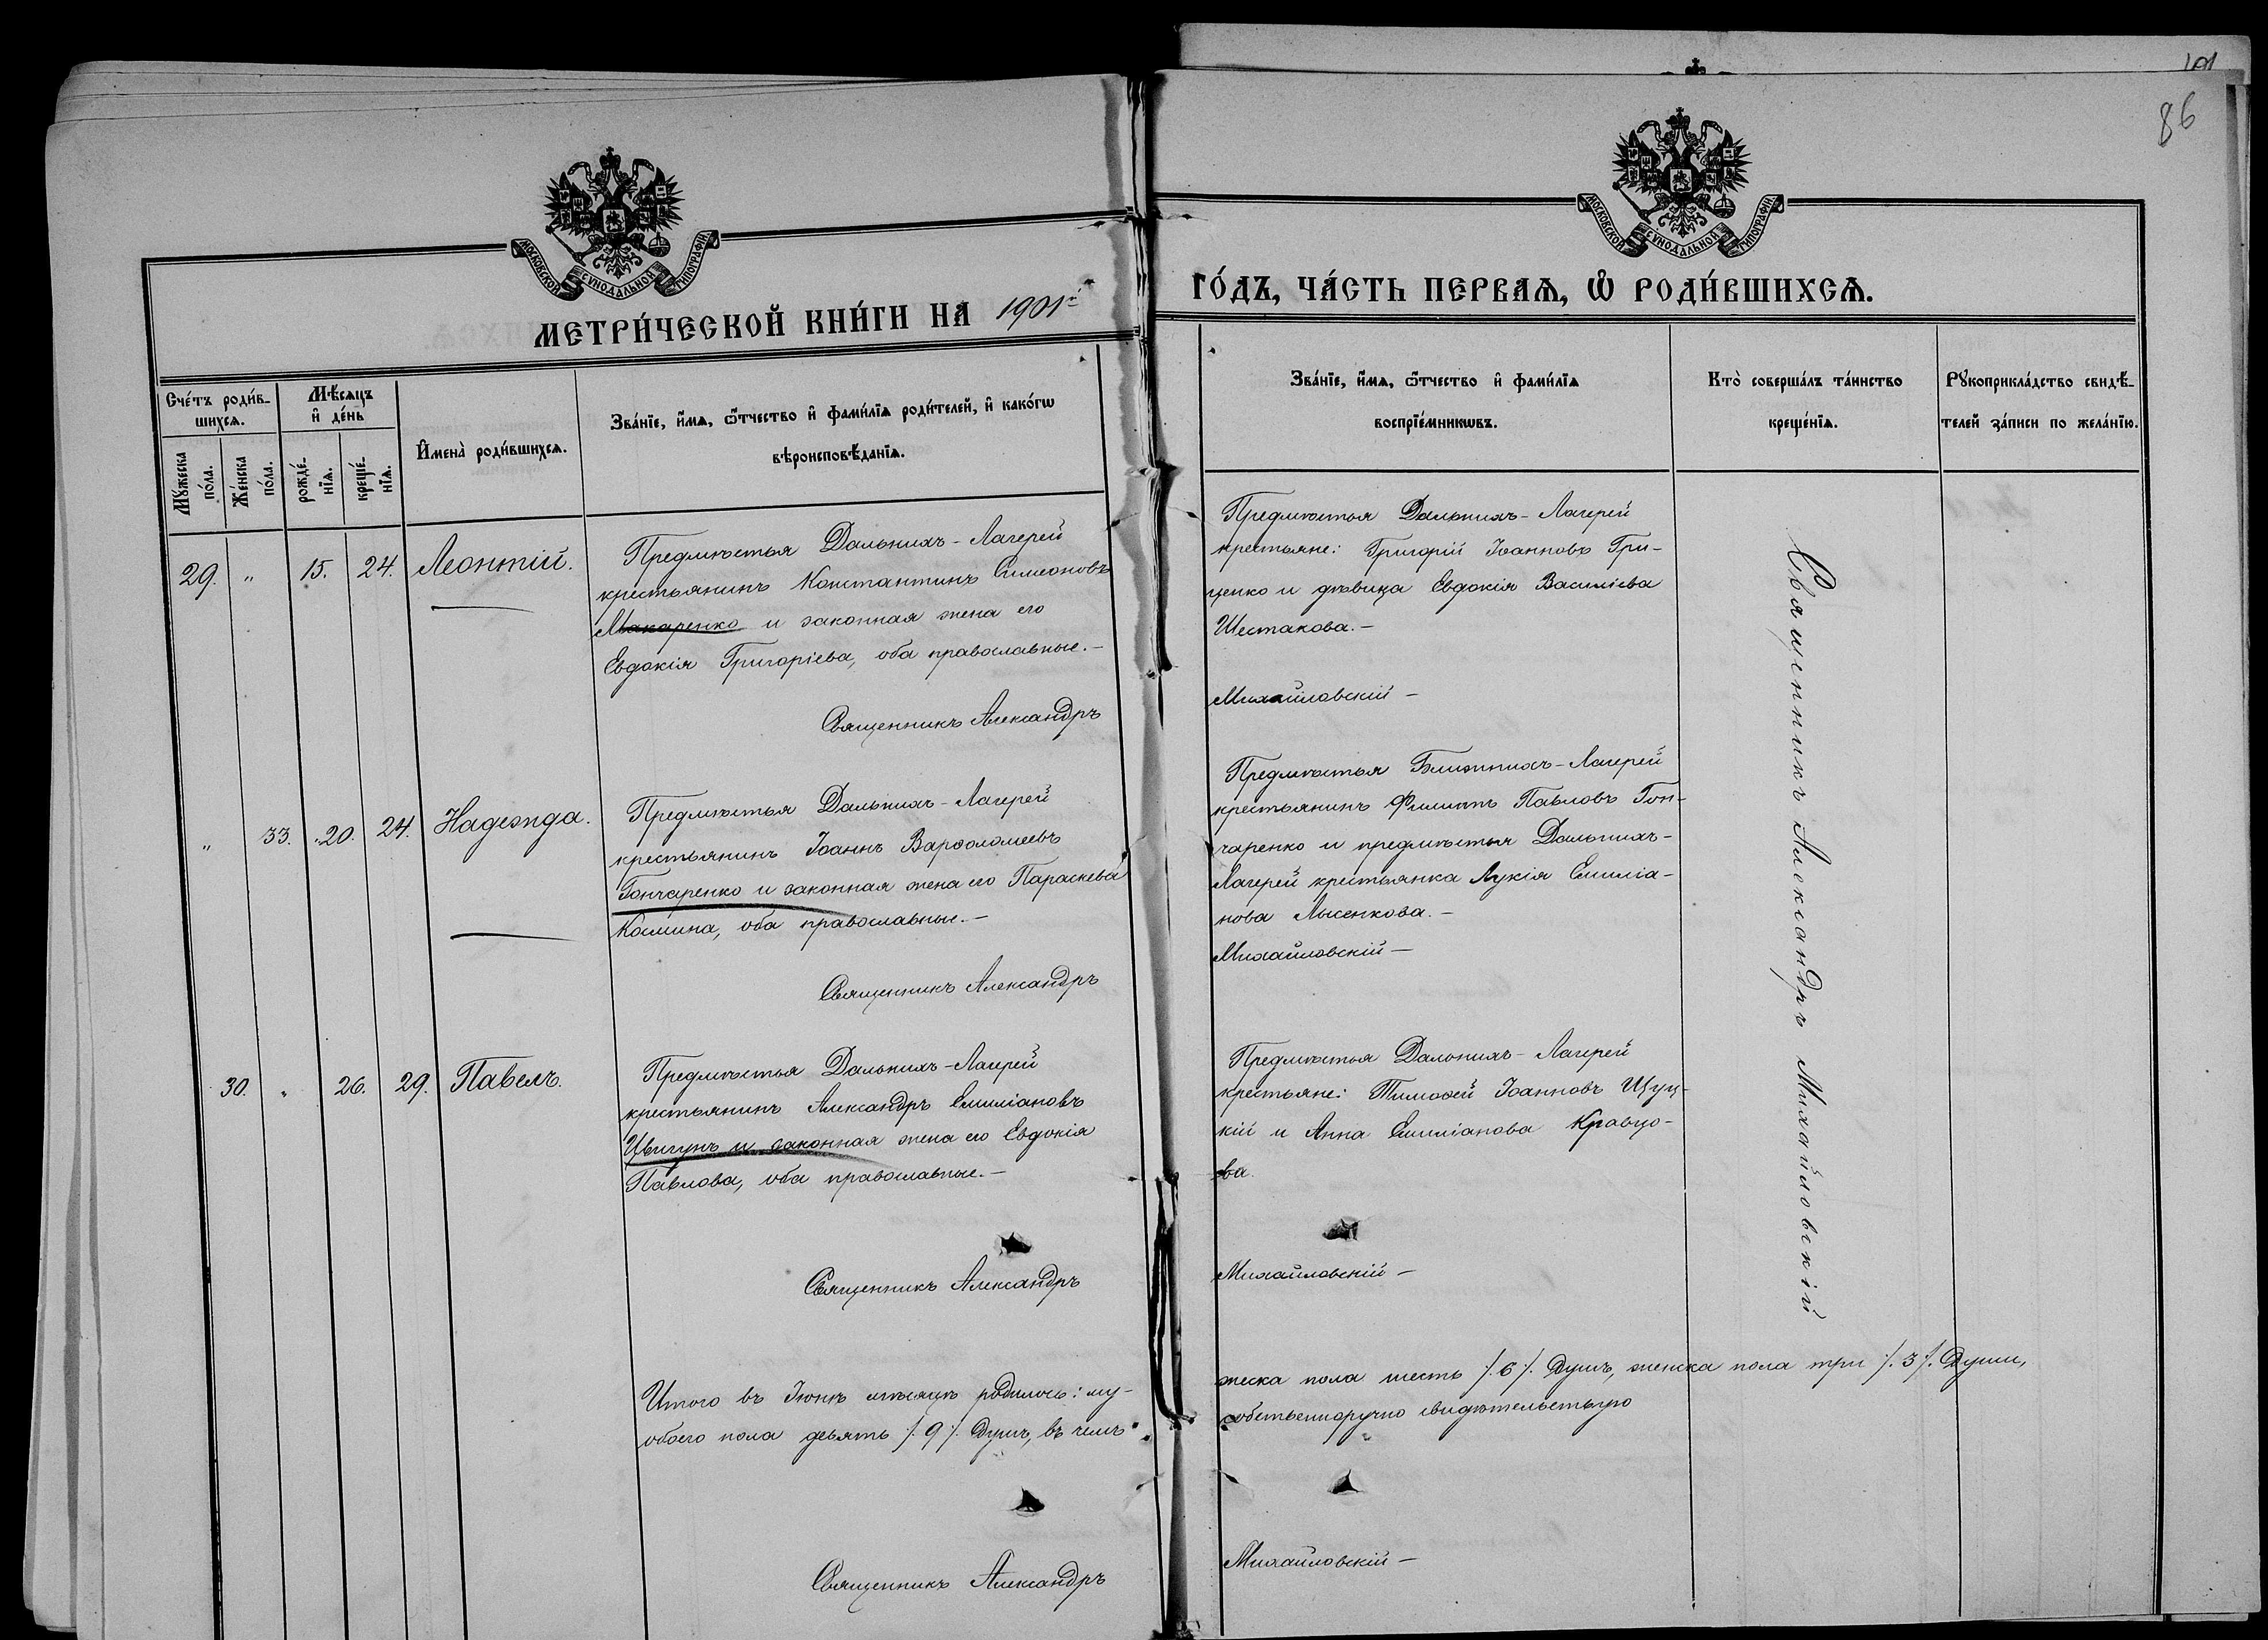 101
86
МОСКОВСКОЙ СѴНОДАЛЬНОЙ ТИПОГРАФІИ
МОСКОВСКОЙ СѴНОДАЛЬНОЙ ТИПОГРАФІИ
МЕТРИ́ЧЕСКОЙ КНИ́ГИ НА 1901й
ГО́ДЪ, ЧА́СТЬ ПЕРВАѦ, Ѽ РОДИ́ВШИХСѦ.
Сче́тъ роди́в-
шихсѧ.
Мѣ́сѧцъ
и҆ де́нь
Мꙋ́жеска
по́ла.
Же́нска
по́ла.
рожде́-
нїѧ.
креще́-
нїѧ.
И҆мена̀ роди́вшихсѧ.
Зва́нїе, и҆́мѧ, ѻ҆́тчество и҆ фами́лїѧ роди́телей, и҆ како́гѡ
вѣроисповѣ́данїѧ.
Зва́нїе, и҆́мѧ, ѻ҆́тчество и҆ фами́лїѧ
воспрїе́мникѡвъ.
Кто̀ соверша́лъ та́инство
креще́нїѧ.
Рꙋкоприкла́дство свидѣ́-
телей за́писи по жела́нїю.
29. " 15. 24. Леонтій.
Предмѣстья Дальнихъ-Лагерей
крестьянинъ Константинъ Симеоновъ
Макаренко и законная жена его
Евдокія Григоріева, оба православные.-
Священникъ Александръ
Предмѣстья Дальнихъ-Лагерей
крестьяне: Григорій Іоанновъ Гри-
ценко и дѣвица Евдокія Василіева
Шестакова.-
Михайловскій-
" 33. 20. 24. Надежда.
Предмѣстья Дальнихъ-Лагерей
крестьянинъ Іоаннъ Варѳоломеевъ
Гончаренко и законная жена его Параскева
Космина, оба православные.-
Священникъ Александръ
Предмѣстья Ближнихъ-Лагерей
крестьянинъ Филиппъ Павловъ Гон-
чаренко и предмѣстья Дальнихъ-
Лагерей крестьянка Лукія Емиліа-
нова Лысенкова.-
Михайловскій-
30. " 26. 29. Павелъ.
Предмѣстья Дальнихъ-Лагерей
крестьянинъ Александръ Емиліановъ
Цвигунъ и законная жена его Евдокія
Павлова, оба православные.-
Священникъ Александръ
Предмѣстья Дальнихъ-Лагерей
крестьяне: Тимоѳей Іоанновъ Щуц-
кій и Анна Емиліанова Кравцо-
ва.
Михайловскій-
Священникъ Александръ Михайловскій
Итого въ Іюнѣ мѣсяцѣ родилось: му-
жеска пола шесть /.6/. душъ, женска пола три /.3/. души,
обоего пола девять /.9/. душъ, въ чемъ
собственноручно свидѣтельствую
Священникъ Александръ
Михайловскій-